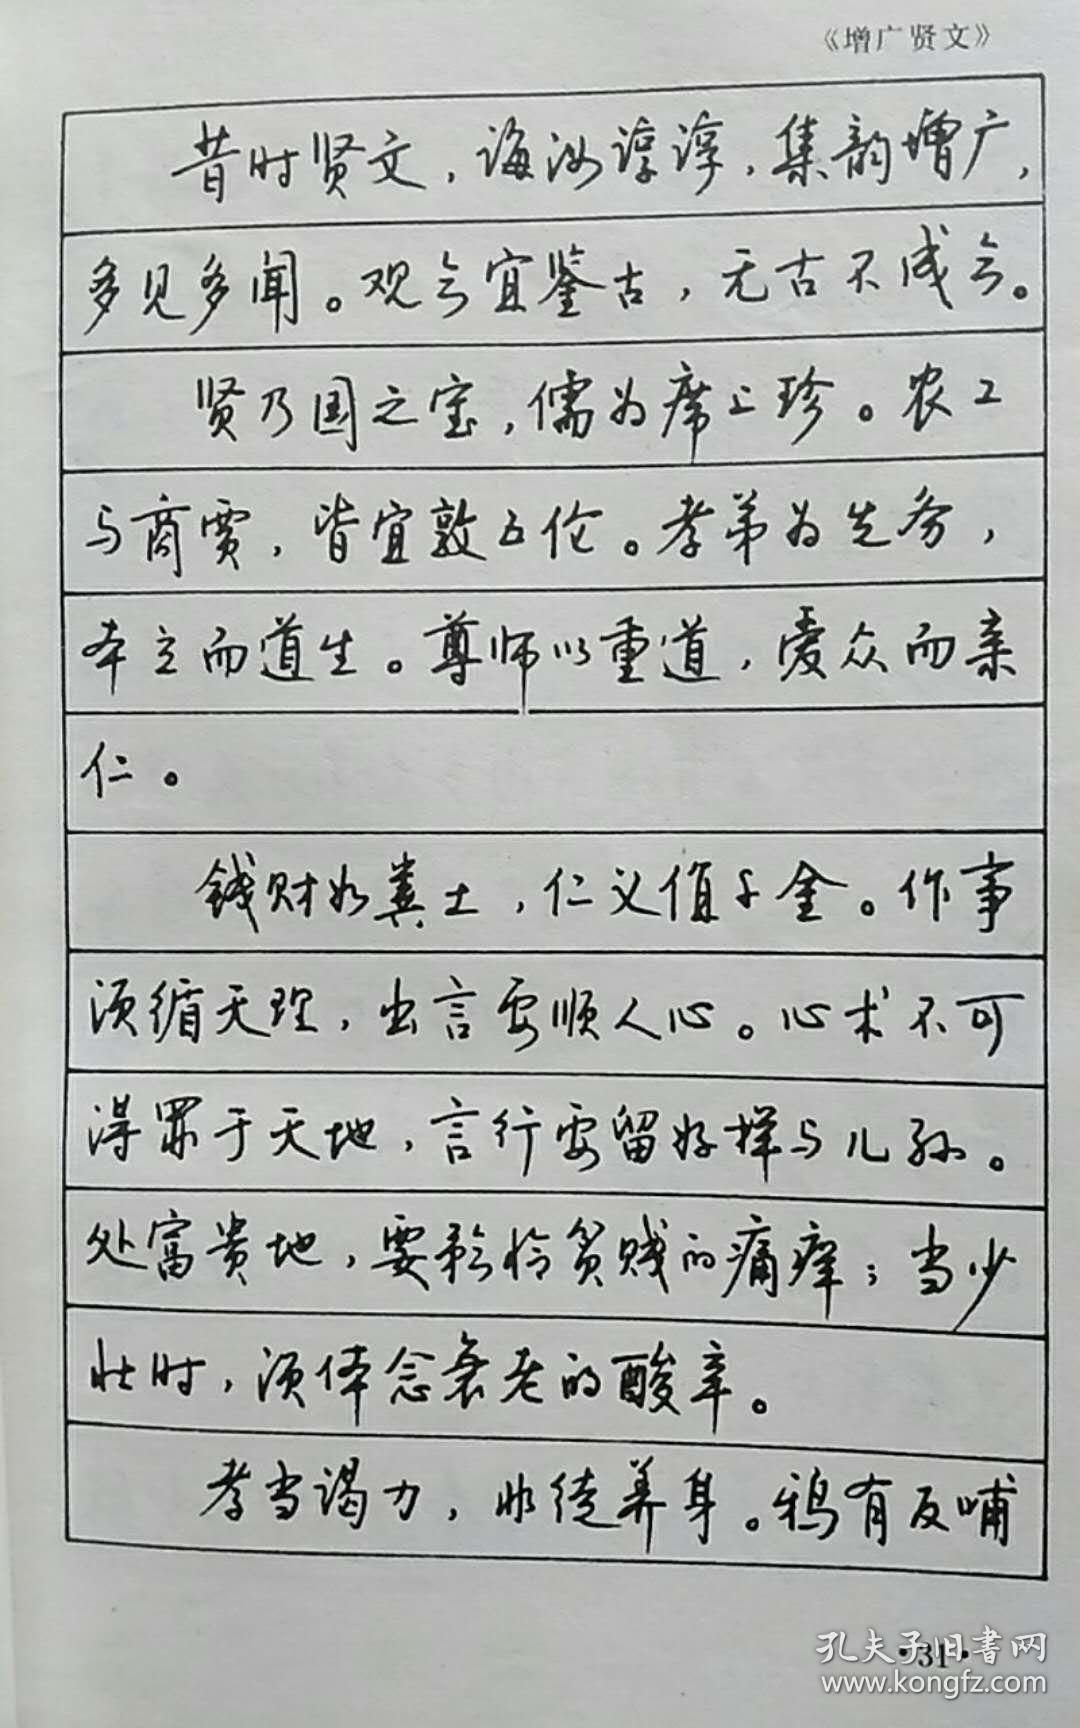 《增广贤文》
昔时贤文，诲汝谆谆，集韵增广，
多见多闻。观今宜鉴古，无古不成今。
贤乃国之宝，儒为席上珍。农工
与商贾，皆宜敦五伦。孝弟为先务，
本立而道生。尊师以重道，爱众而亲
仁。
钱财如粪土，仁义值千金。作事
须循天理，出言要顺人心。心术不可
得罪于天地，言行要留好样与儿孙。
处富贵地，要矜怜贫贱的痛痒；当少
壮时，须体念衰老的酸辛。
孝当竭力，非徒养身。鸦有反哺
·31·
孔夫子旧书网
www.kongfz.com